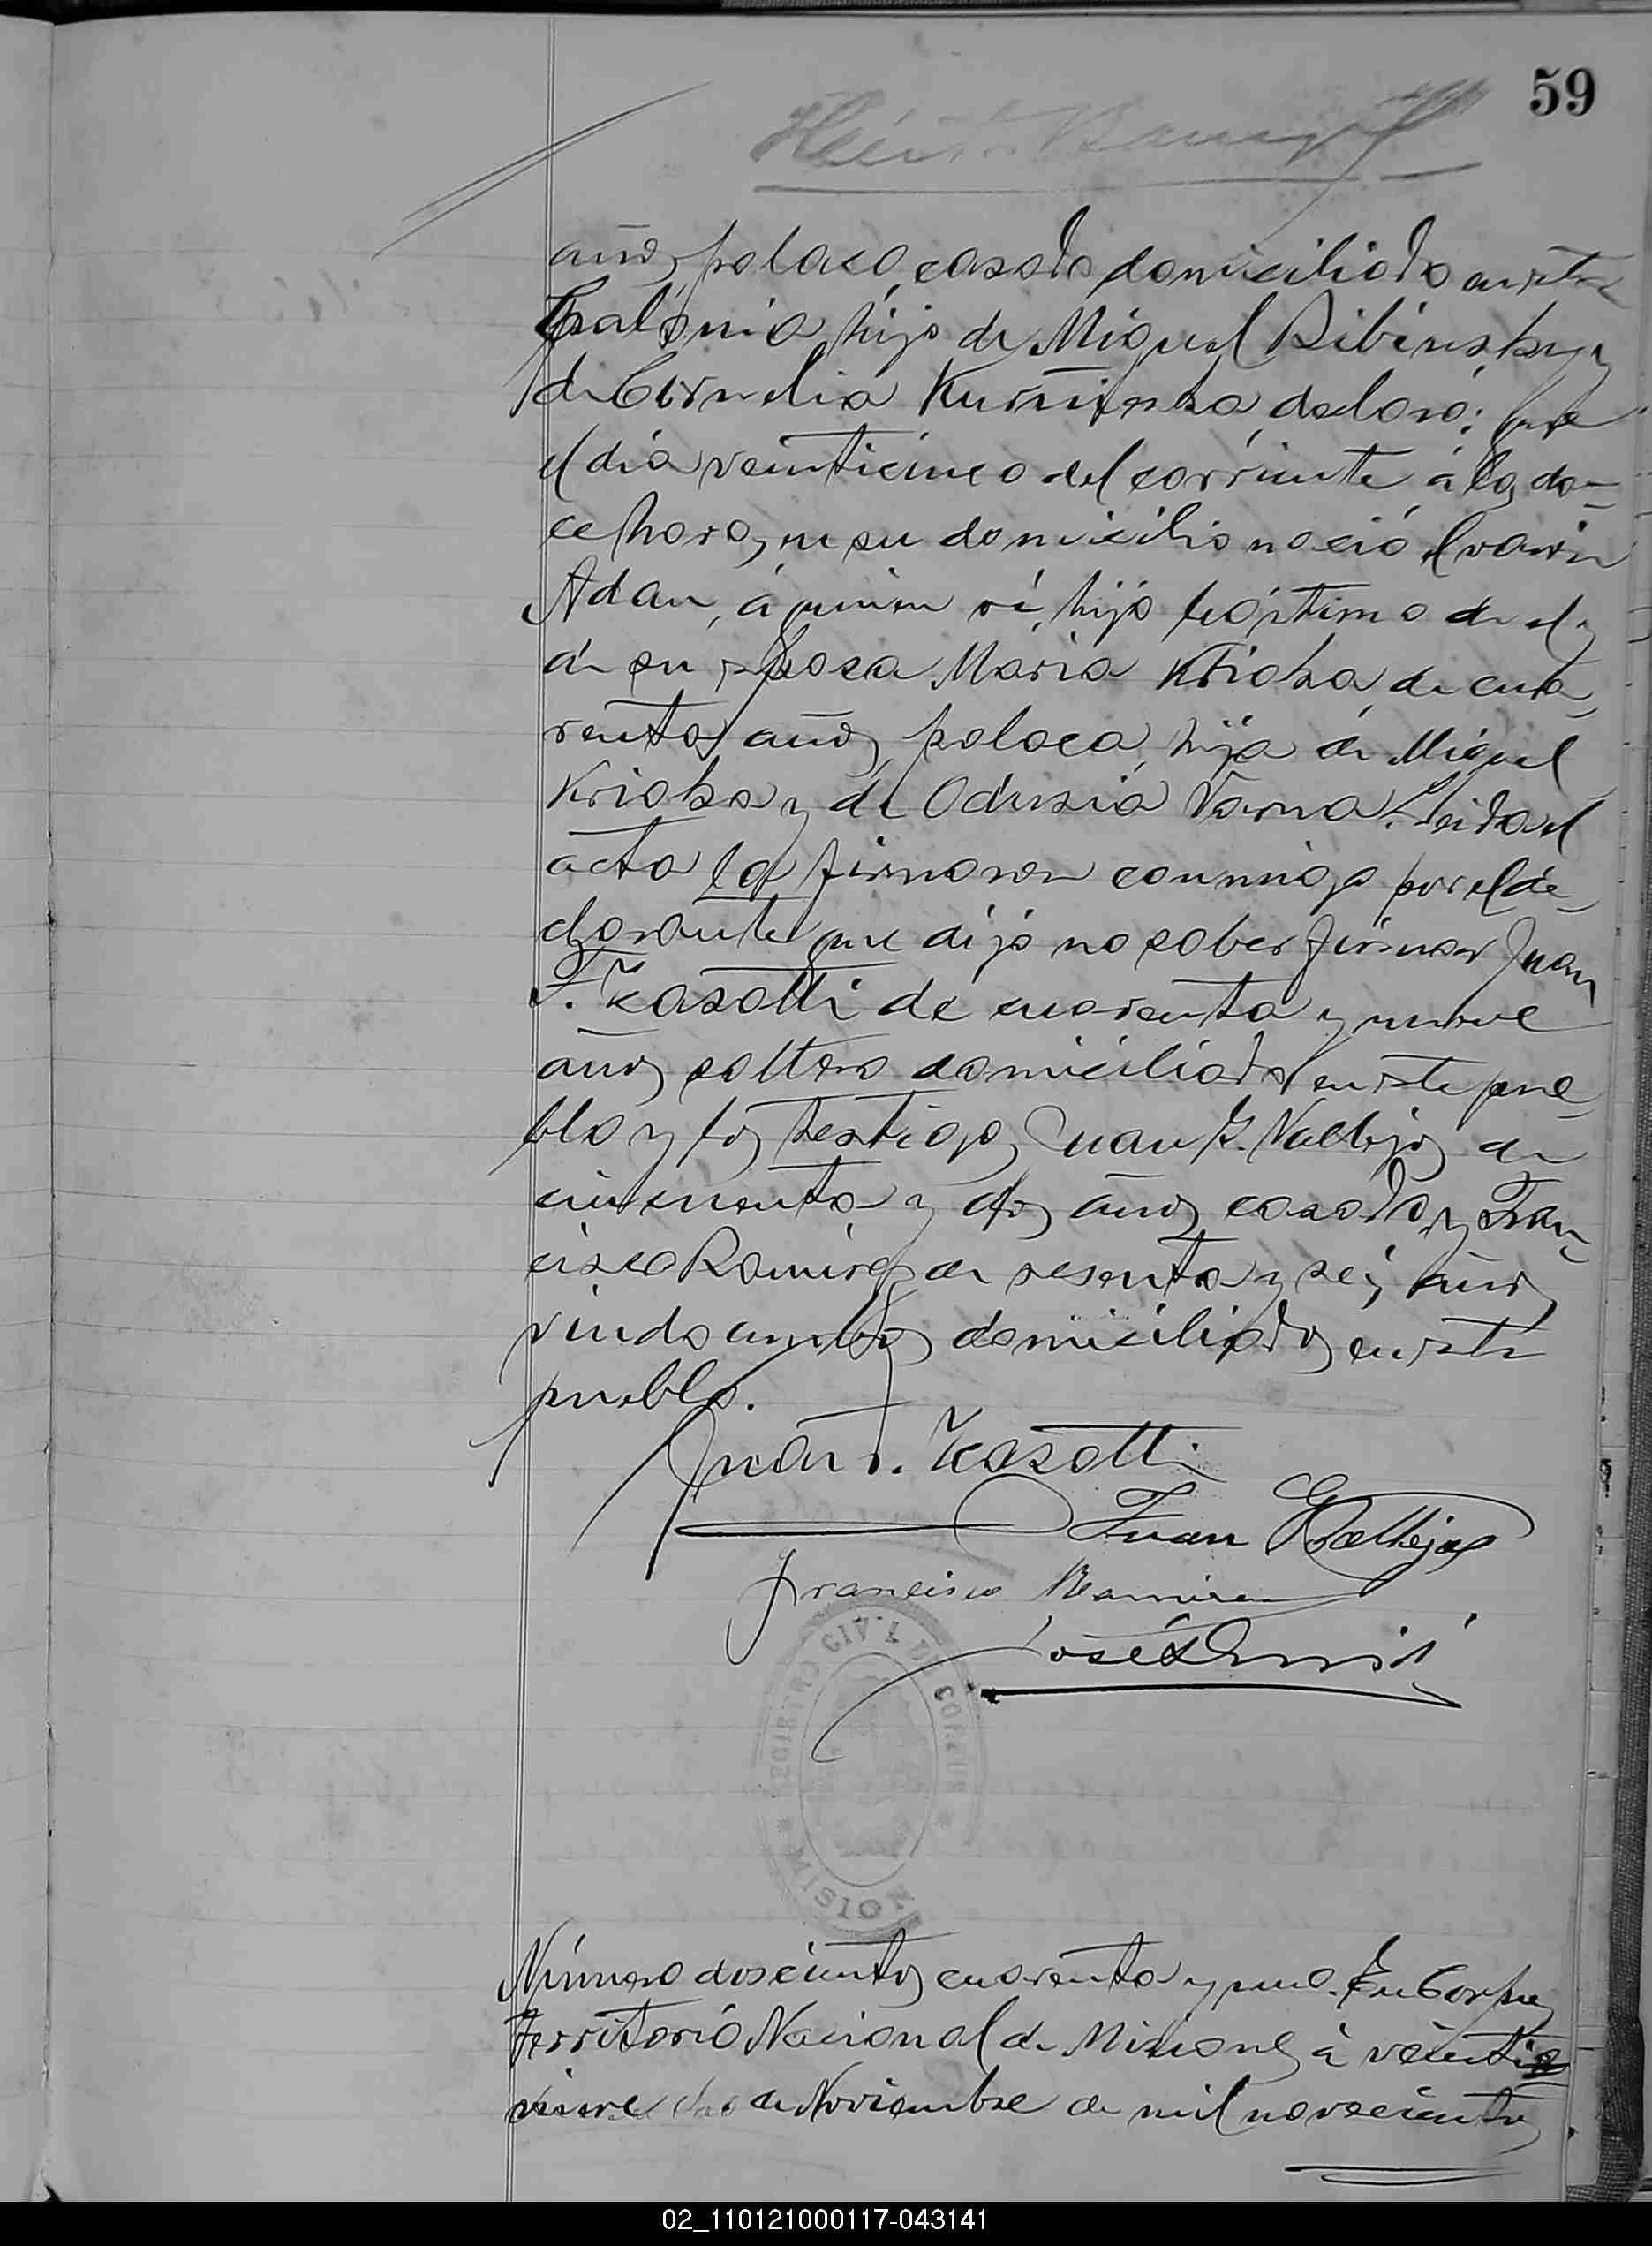 59
años, polaco, casado domiciliado en esta
Colonia hijo de Miguel Ribinsky y
de Cornelia declaró: que
el dia veinticinco del corriente á las do-
ce horas, en su domicilio nació el varon
Adan, á quien ví, hijo séptimo de el y
de su esposa Maria Krioka, de cua-
renta años, polaca, hija de Miguel
Krioka y de Odusia Varna. Leida el
acta la firmaron conmigo por el de-
clarante que dijo no saber firmar Juan
F. Kasotti de cuarenta y nueve
años soltero domiciliado en este pue-
blo y los testigos Juan G. Vallejos de
cincuenta y dos años casado, y Fran-
cisco Ramirez de sesenta y seis años
viudo ambos domiciliados en este
pueblo.
Juan F. Kasotti
Juan G Vallejos
Francisco Ramirez
José
REGISTRO CIVIL DE CORPUS
* MISIONES *
Número doscientos cuarenta y uno. En Corpus
Territorio Nacional de Misiones á veinti
nueve dias de Noviembre de mil novecientos
02_110121000117-043141